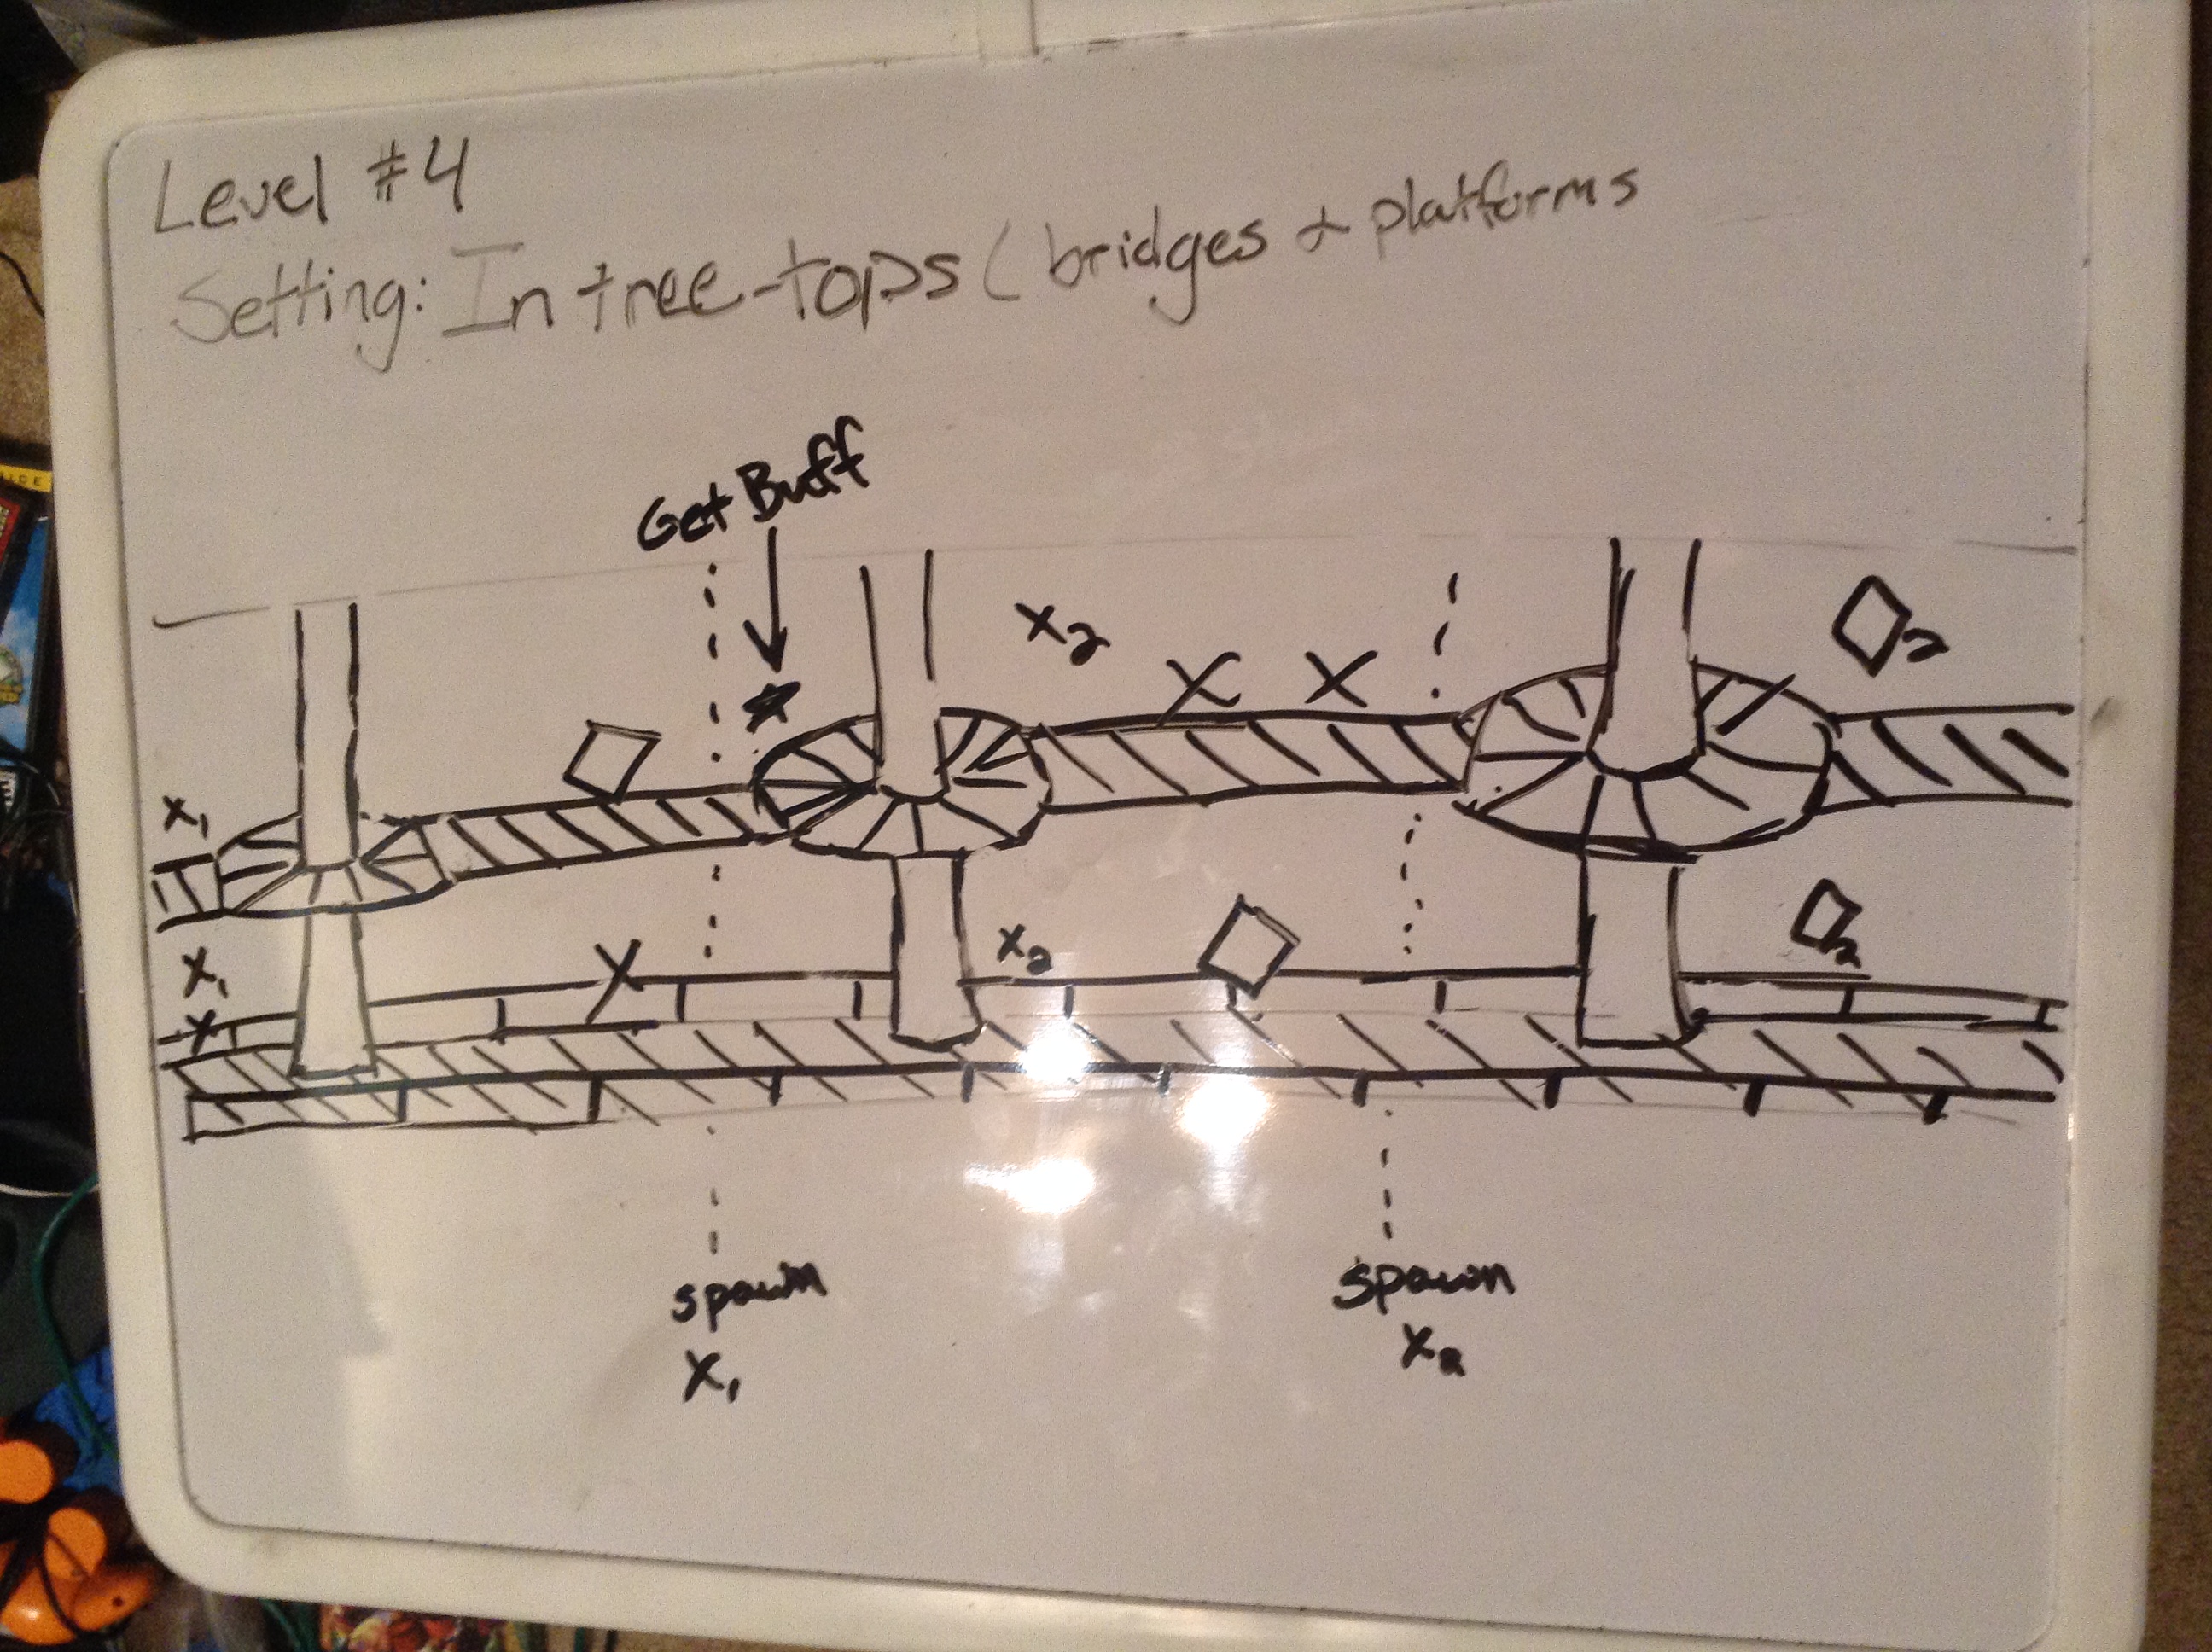 Level #4
Setting: In tree-tops ( bridges & platforms
Get Buff
x2
2
x1
x1
x
x
x x
x2
2
spawn spawn
x1 x2